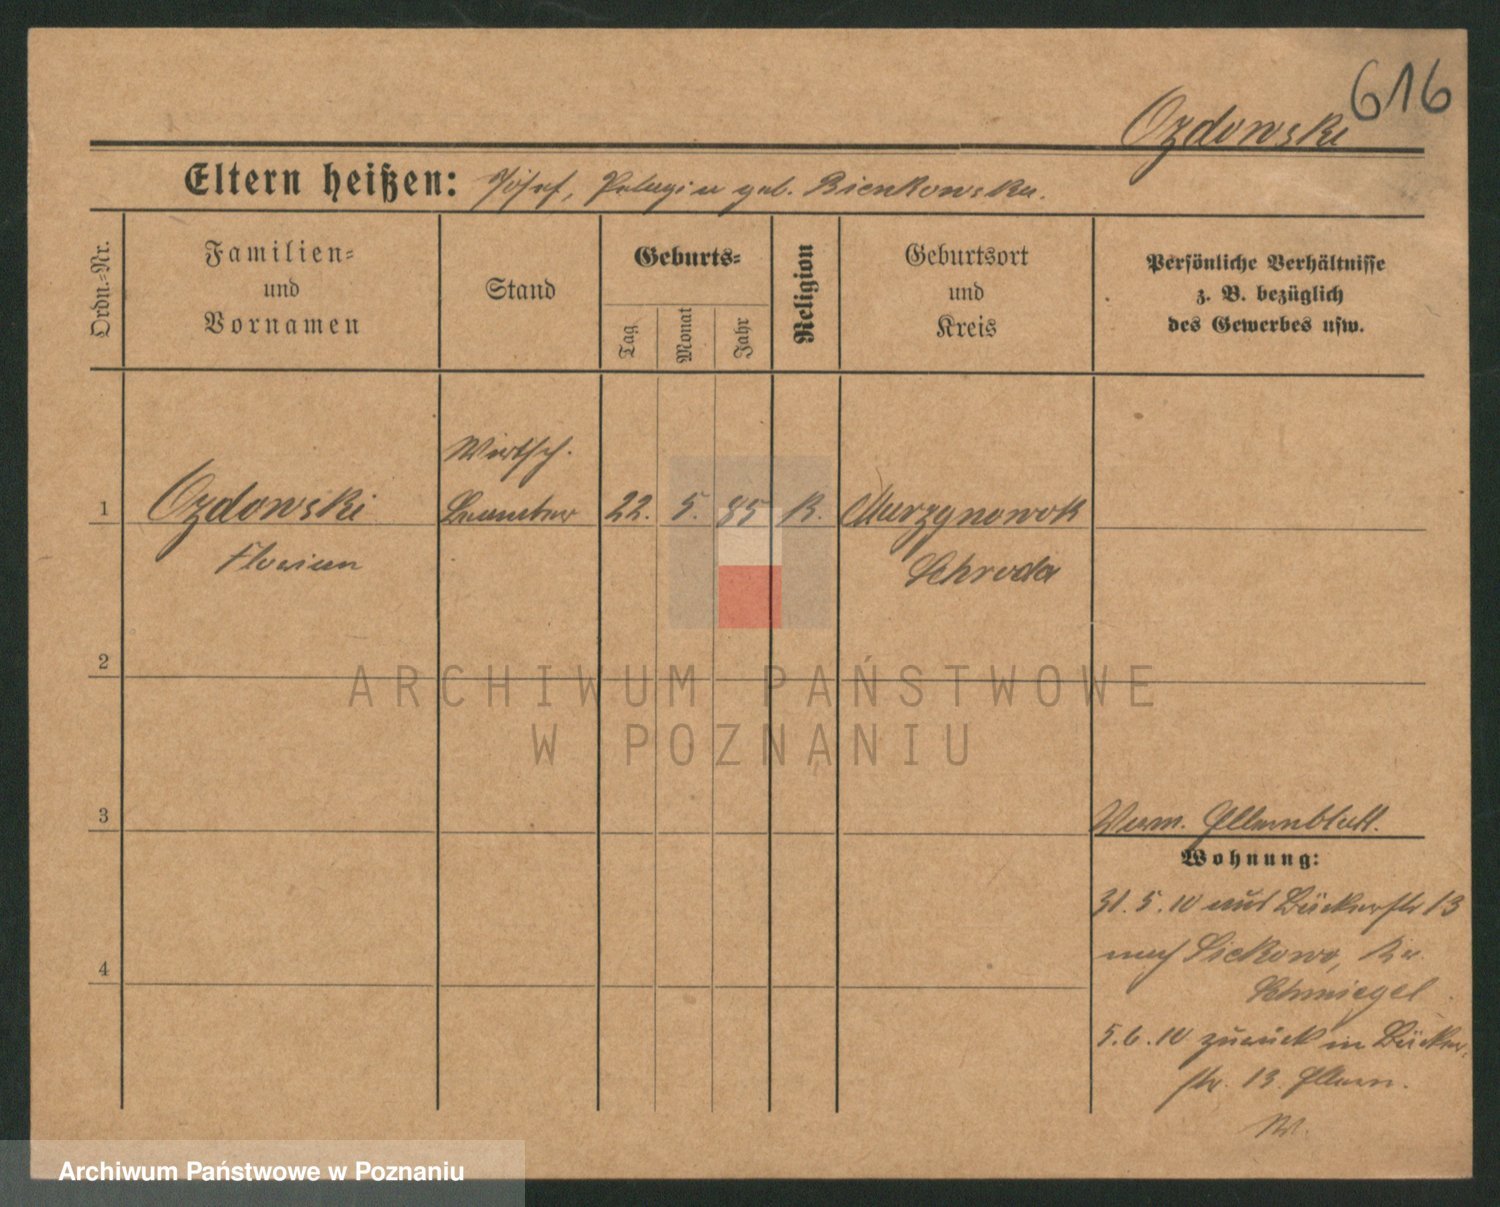 616
Ozdowski
Eltern heißen: Josef, Pelagia geb. Bienkowska.
Ordn.-Nr.
Familien- und Vornamen
Stand
Geburts-
Tag
Monat
Jahr
Religion
Geburtsort und Kreis
Persönliche Verhältnisse
z. B. bezüglich
des Gewerbes usw.
Wirtsch.
1 Ozdowski Beamter 22. 5. 85 K. Murzynowok
Florian Schroda
2
ARCHIWUM PAŃSTWOWE
W POZNANIU
3
Verm. Elternblatt.
Wohnung:
31.5.10 aus Bäckerstr 13
nach Sickowo, Kr.
4
Schmiegel
5.6.10 zurück in Bäcker-
str. 13. Eltern.
Archiwum Państwowe w Poznaniu